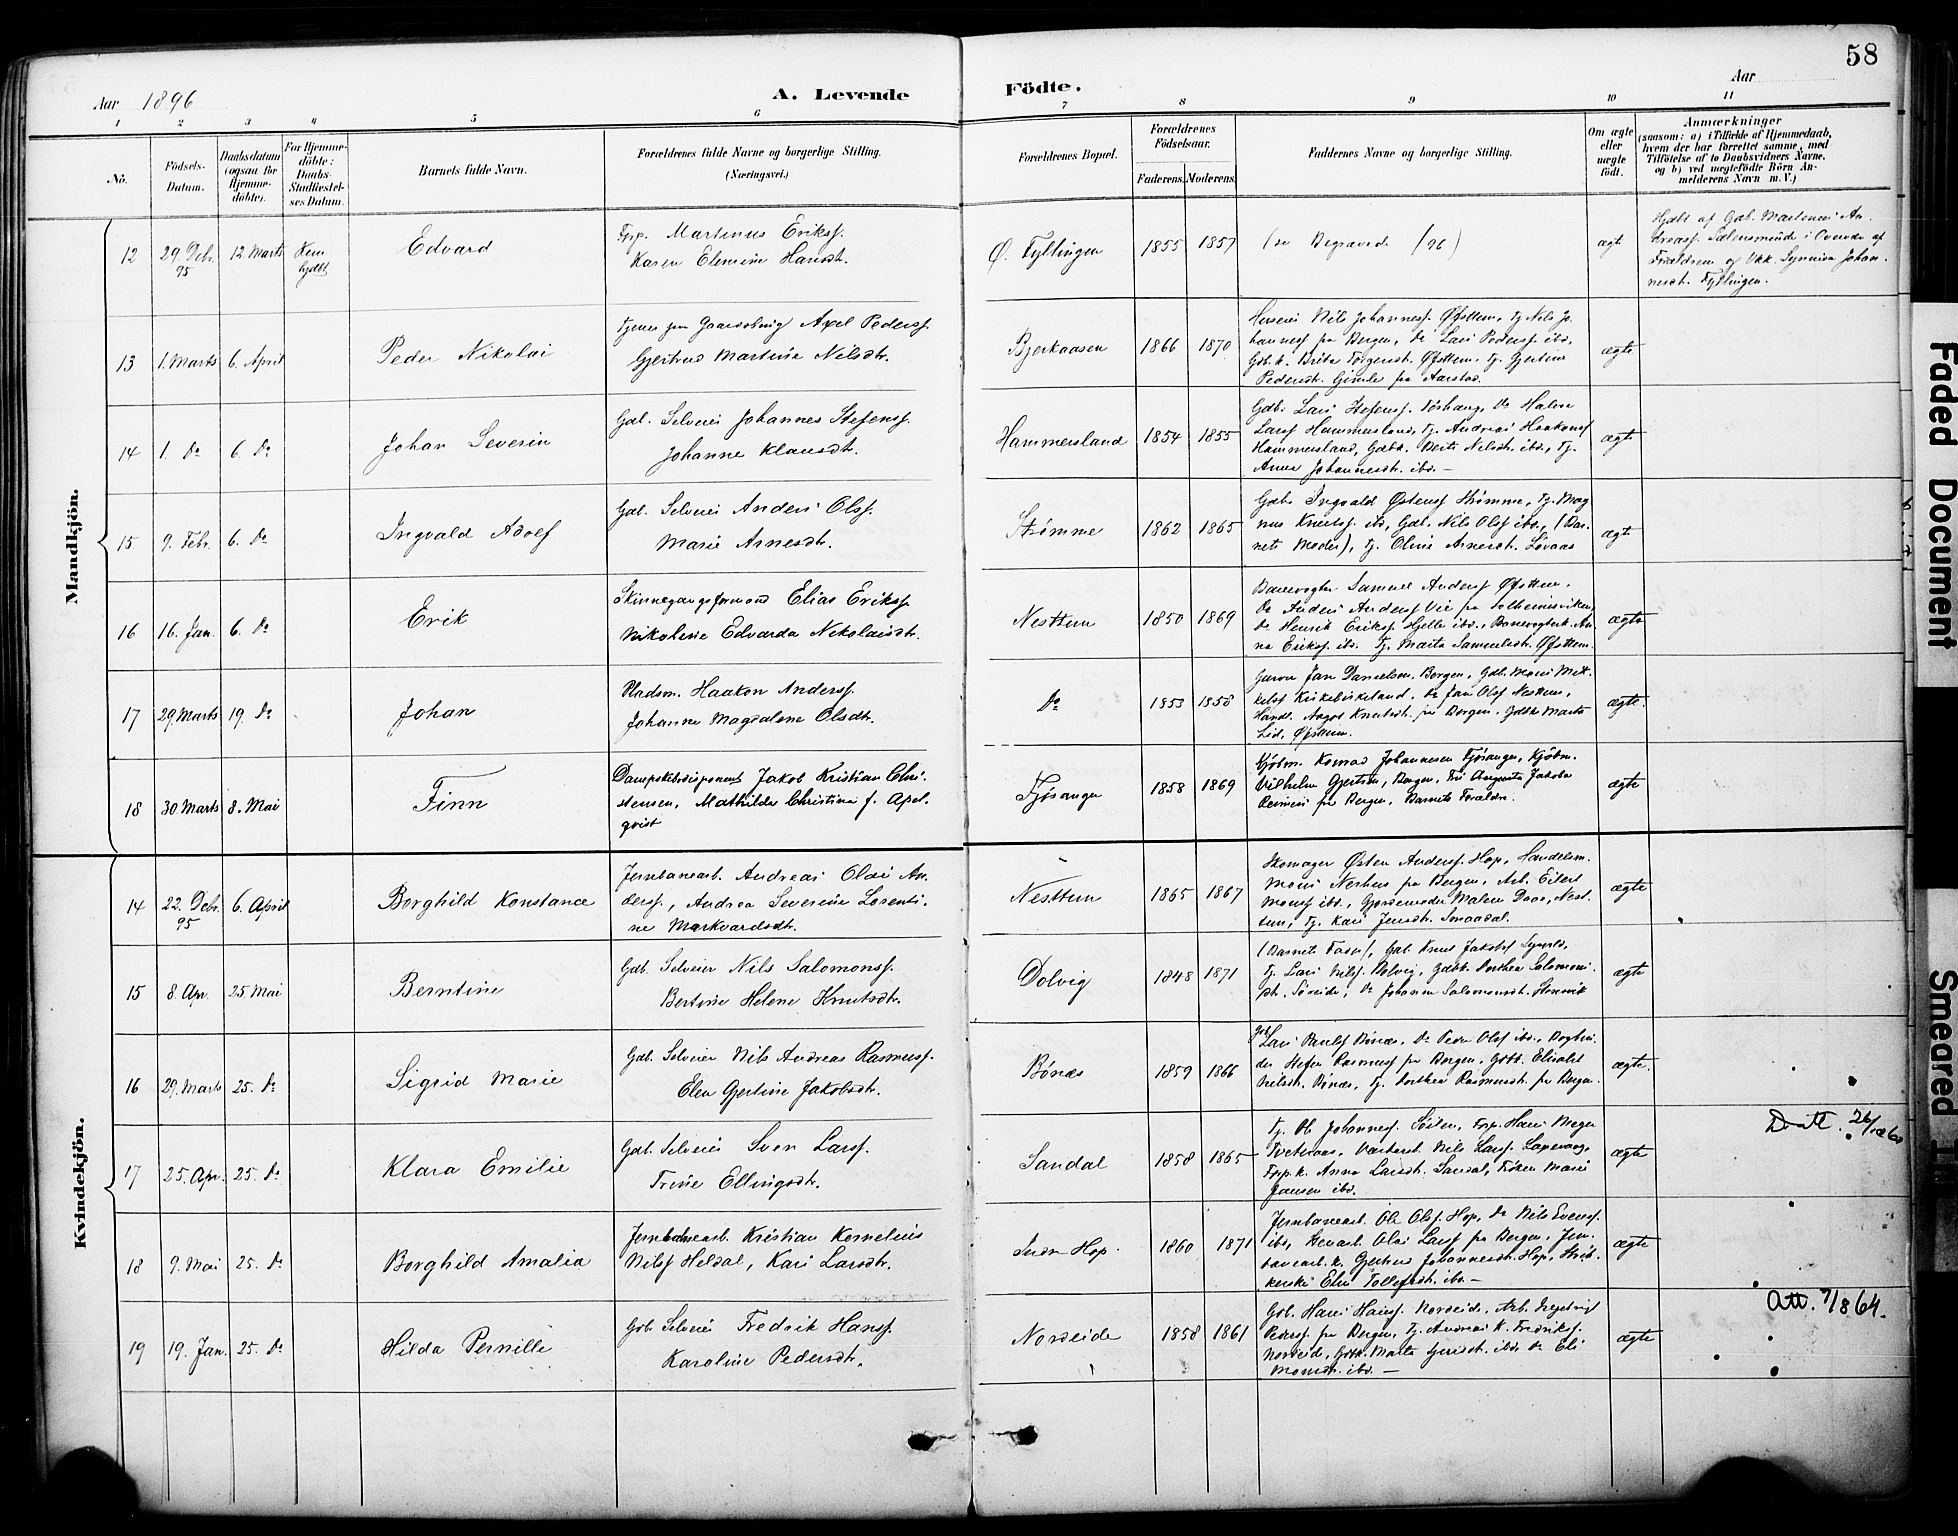 58
Aar 1896
A. Levende Födte.
Aar
1 2 3 4 5 6 7 8 9 10 11
No.
Födsels-Datum.
Daabsdatum (ogsaa for Hjemme-döbte).
For Hjemme-döbte: Daabs-Stadfæstel-ses Datum.
Barnets fulde Navn.
Forældrenes fulde Navne og borgerlige Stilling.
(Næringsvei.)
Forældrenes Bopæl.
Forældrenes Födselsaar.
Faderens. Moderens.
Faddernes Navne og borgerlige Stilling.
Om ægte eller uægte født.
Anmærkninger
(saasom: a) i Tilfælde af Hjemmedaab,
hvem der har forrettet samme, med
Tilföielse af to Daabsvidners Navne,
og b) ved uægtefödte Börn An-
melderens Navn m. V.)
Mandkjön.
12 29. Debr. 95 12. Marts Kun hjdbt Edvard
Fpp. Martinus Erikss.
Karen Elemine Hansdt.
Ø. Fyllingen 1855 1857 (se Begraved /96) ægte
Hjdbt af Gdb. Martinus An-
dreass. Sælensminde i Overvær af
Forældrene og Ukk. Synniva Johan-
nesdt. Fyllingen.
13 1. Marts 6. April Peder Nikolai
Axel Pederss.
Gjertrud Martine Nilsdt.
Bjerkaasen 1866 1870
Nils Johanness. Øfsttun, Tj. Nils Jo-
hanness fra Bergen, Do Lars Pederss. ibd.
Gdb.k. Brita Torgersdt. Øfsttun, Tj. Gjertine
Pedersdt. Gimle fra Aarstad.
ægte
14 1. Do 6. Do Johan Severin
Gdb. Selveier Johannes Stefenss.
Johanne Klausdt.
Hammersland 1854 1855
Gdb. Lars Stefenss. Do Halvor
Larss Hammersland, Tj. Andreas Haakonss
Hammersland, Gdbk. Berte Nilsdt. ibd., Tj.
Anna Johannesdt. ibd. —
ægte
15 9. Febr. 6. Do Ingvald Adolf
Gdb. Selveier Anders Olss.
Marie Arnesdt.
Strømme 1862 1865
Gdb. Ingvald Østenss Strømme, Tj. Mag-
nus Knutss. ibd., Gdb. Nils Olss ibd., (Bar-
nets Moder), Tj. Oline Arnesdt. Løvaas
ægte
16 16. Jan. 6. Do Erik
Skinnegangsformand Elias Erikss.
Nikoline Edvarda Nikolaisdt.
Nesttun 1850 1869
Banevogter Samuel Anderss Øfsttun,
Do Anders Anderss Vie fra Solheimsviken,
Do Henrik Erikss. Hjelle ibd., Banevogterk. An-
na Erikss. ibd. Tj. Marta Samuelsdt. Øfsttun.
ægte
17 29. Marts 19. Do Johan
Pladsm. Haakon Anderss.
Johanne Magdalene Olsdt.
Do 1853 1858
Jan Danielsen Bergen, Gdb. Mons Mik-
kelss Kirkebirkeland, Do Jan Olss Nesttun,
Handl. Aagot Knutsdt. fra Bergen, Gdbk. Marta
Lid, Øfsttun.
ægte.
18 30. Marts 8. Mai Finn
Dampskibsdisponent Jakob Kristian Chri-
stensen, Mathilde Christina f. Apel-
qvist
Fjøsanger 1858 1869
Kjöbm. Konrad Johannesen Fjøsanger, Kjöbm.
Vilhelm Gjertsen, Bergen, Frk Augusta Jakobe
fra Bergen, Barnets Forældre.
ægte
Kvindekjön.
14 22. Debr. 95 6. April Borghild Konstance
Jernbanearb. Andreas Olai An-
derss., Andrea Severine Lorenti-
ne Markvardsdt.
Nesttun 1865 1867
Skomager Østen Anderss. Hop, Handelsm.
Mons Nerhus fra Bergen, Arb. Eilert
Monss ibd., Gjordemoder Malene Daae, Nest-
tun, Tj. Kari Jensdt. Smaadal.
ægte
15 8. Ap. 25. Mai Berntine
Gdb. Selveier Nils Salomonss.
Bertine Helene Knutsdt.
Dolvig 1848 1871
(Barnets Fader), Gdb. Knut Jakobss
Tj. Lars Nilss. Dolvig, Gdbk. Dorthea Salomons-
dt. Søreide, Do Johanne Salomonsdt.
ægte
16 29. Marts 25. Do Sigrid Marie
Gdb. Selveier Nils Andreas Rasmuss.
Elen Gjertine Jakobsdt.
Bønæs 1859 1866
Gdb. Lars Paulss Bønæs, Do Peder Olss ibd., Bogbin-
der Steffen Rasmuss fra Bergen, Gdbk. Elisabet
Nilsdt. Bønæs, Tj. Dorthea Rasmusdt. fra Bergen.
ægte.
17 25. Ap. 25. Do Klara Emilie
Gdb. Selveier Sven Larss.
Trine Ellingsdt.
Sandal 1858 1865
Tj. Ole Johanness. Fpp. Hans Meyer
Tveteraas, Nils Larss.
Fpp.k. Anna Larsdt. Sandal, Frøken Marie
Jansen ibd.
ægte
18 9. Mai 25. Do Borghild Amalia
Jernbanearb. Kristian Kornelius
Nilss Heldal, Kari Larsdt.
Indre Hop. 1860 1871
Jernbanearb. Ole Olss. Hop, Do Nils Svenss.
ibd., Olai Larss fra Bergen, Jern-
banearb.k. Gjertrud Johannesdt. Hop, Strik-
kerske Eli Tollefsdt. ibd. —
ægte
19 19. Jan. 25. Do Hilda Pernille
Gdb. Selveier Fredrik Hanss.
Karoline Pedersdt.
Nordeide 1858 1861
Gdb. Hans Hanss. Nordeide, Arb. Ingebrigt
Pederss. fra Bergen, Tj. Andreas K. Fredrikss.
Nordeid, Gdbk. Marta Do Eli
Monsdt. ibd. —
ægte
Att. 7/8 64.
Faded Document
Smeared